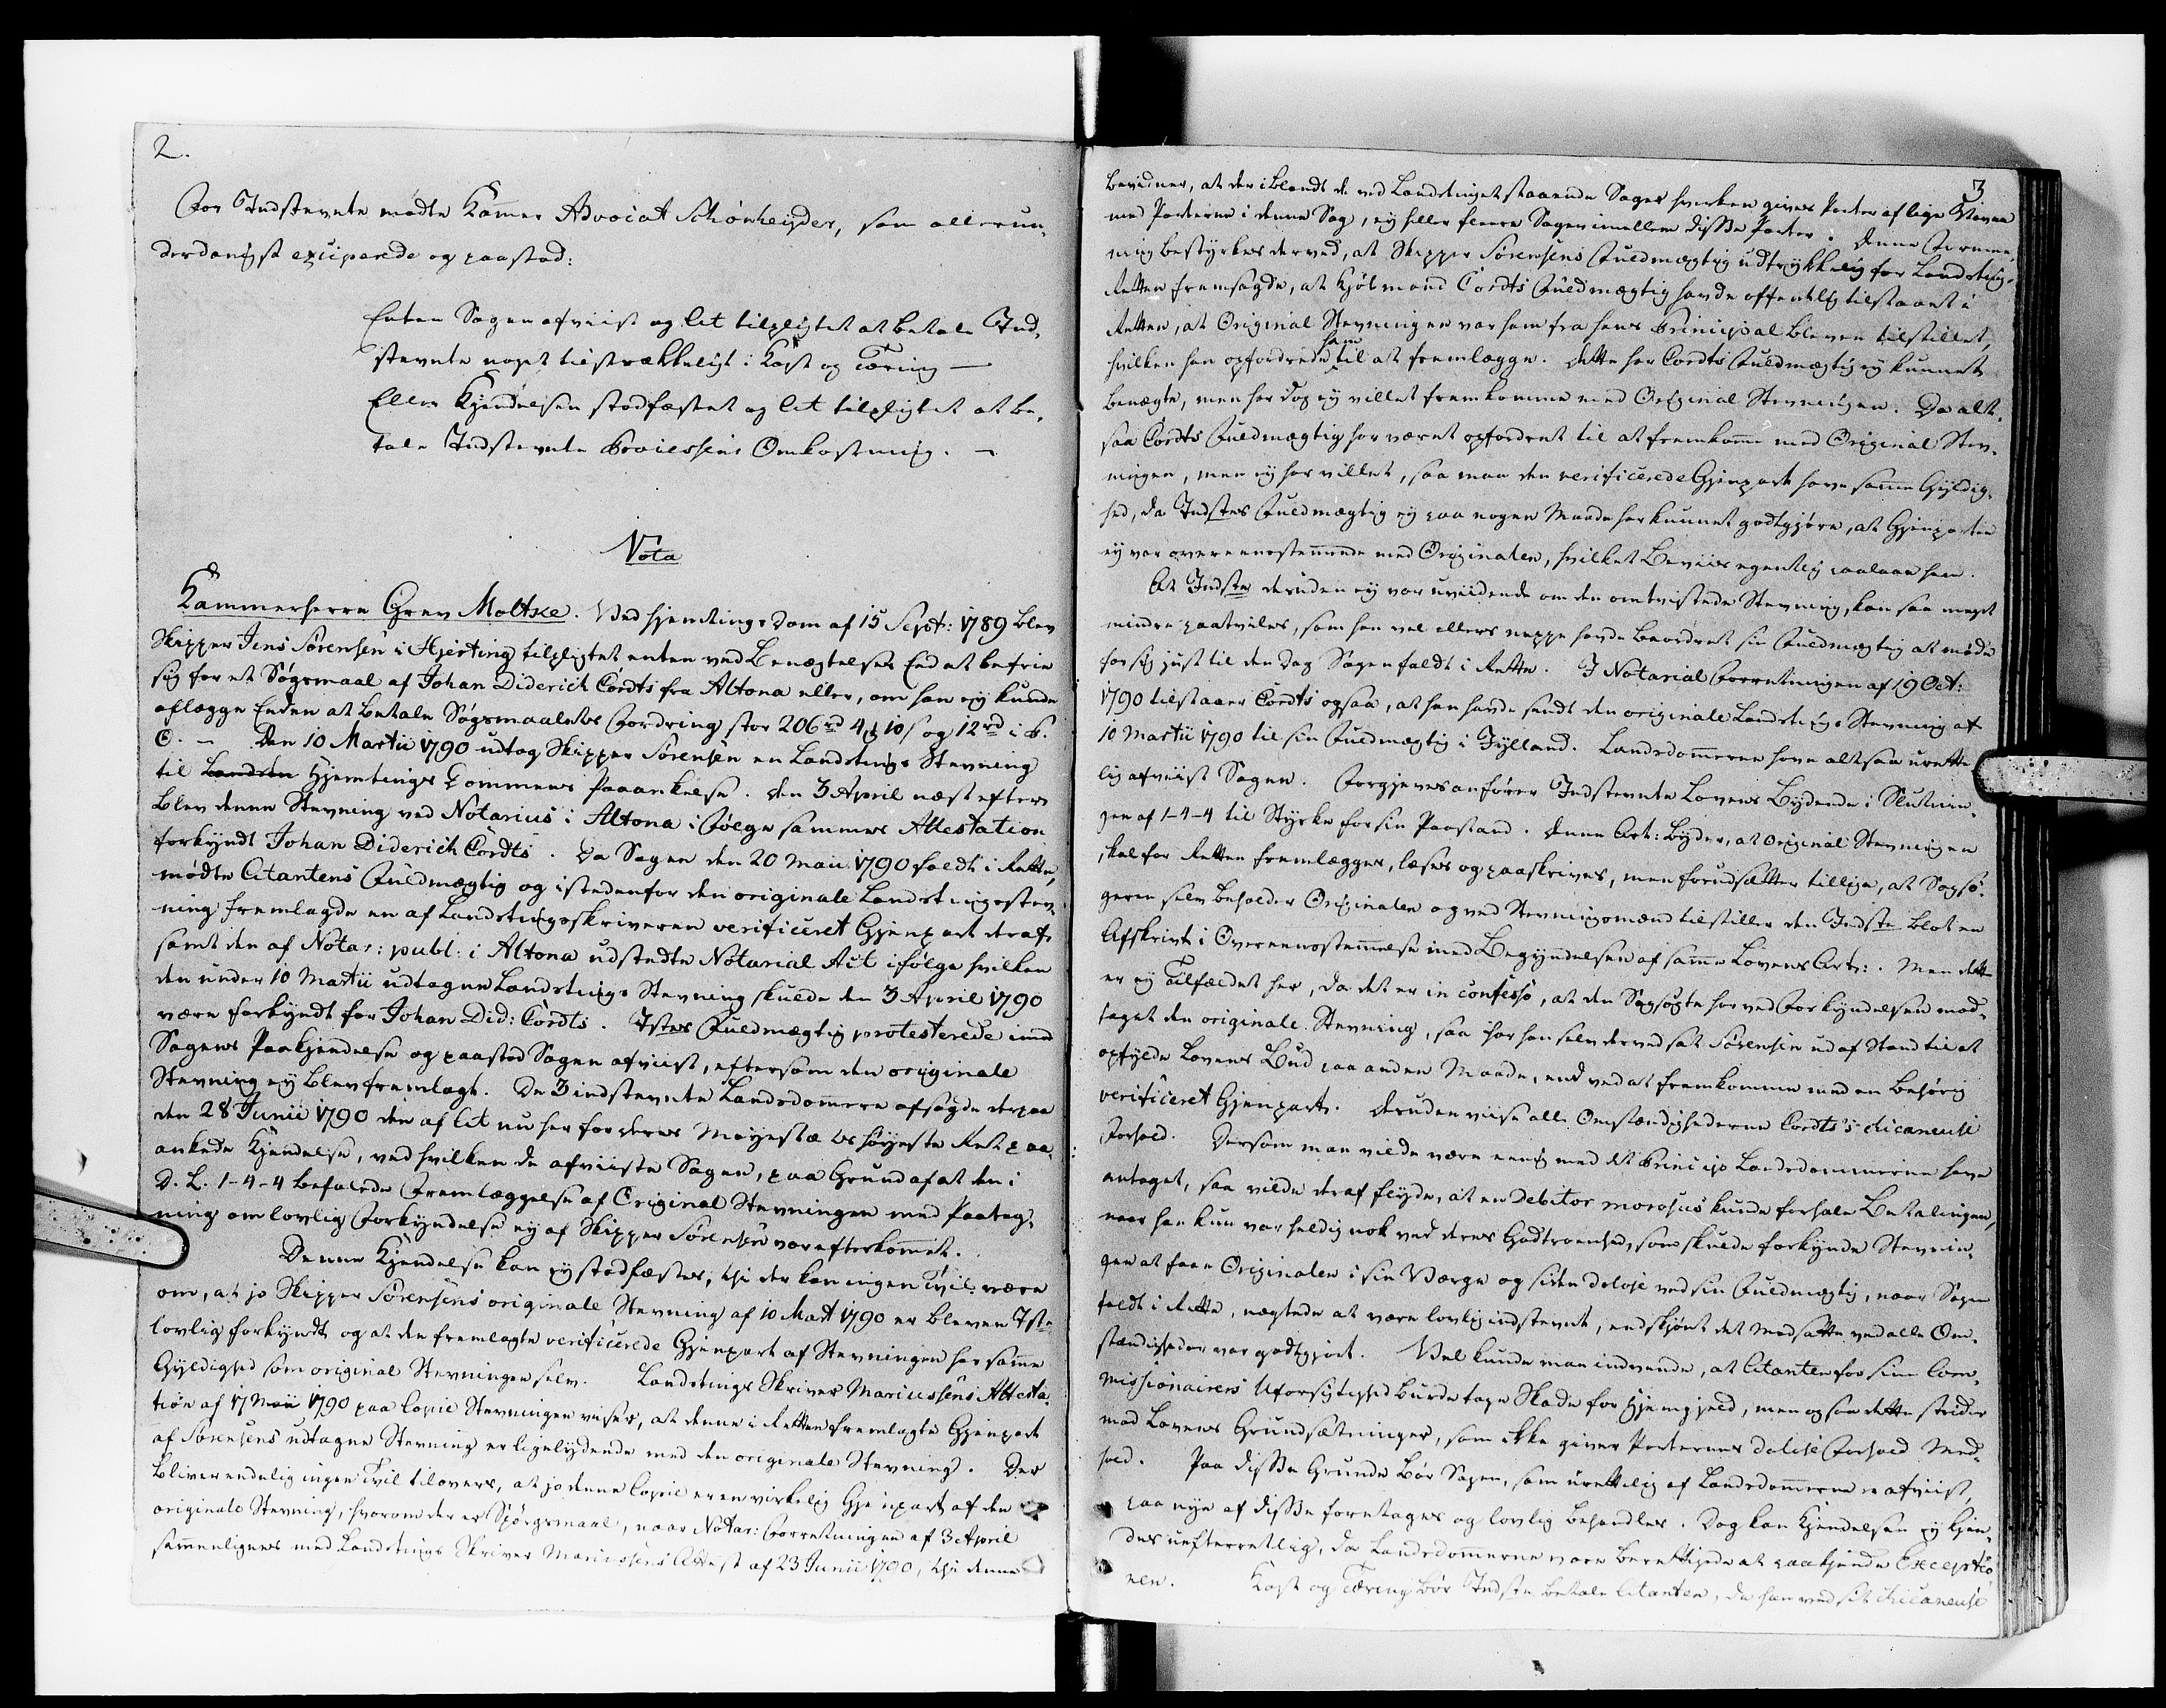 2.
For Indstevnte mødte Kammer Advocat Schönheyder, som allerun-
derdanigst exciperede og paastod:
Enten Sagen afviist og Cit tilpligtet at betale Ind-
stevnte noget tilstrækkeligt i Kost og Tæring —
Eller Kjendelsen stadfæstet og Cit tilpligtet at be-
tale Indstevnte Processens Omkostning. —
Vota
Kammerherre Grev Moltke. Ved Hjemtings Dom af 15 Sept: 1789 blev
Skipper Jens Sørensen i Hjerting tilpligtet enten ved Benægtelses Eed at befrie
sig for et Søgsmaal af Johan Diderich Cordts fra Altona eller, om han ey kunde
aflægge Eeden at betale Søgsmaalets Fordring stor 206 rd 4 ℔ 10 s og 12 rd i P.
O. — Den 10 Martii 1790 udtog Skipper Sørensen en Landstings Stevning
til Landsen Hjemtings Dommens Paaankelse. Den 3 April næst efter
blev denne Stevning ved Notarius i Altona i Følge sammes Attestation
forkyndt Johan Diderich Cordts. Da Sagen den 20 Maii 1790 faldt i Rette,
mødte Citantens Fuldmægtig og istedenfor den originale Landstingsstev-
ning fremlagde en af Landstingsskriveren verificeret Gjenpart deraf,
samt den af Notar: publ: i Altona udstedte Notarial Act ifølge hvilken
den under 10 Martii udtagne Landstings Stevning skulde den 3 April 1790
være forkyndt for Johan Did: Cordts. Istes Fuldmægtig protesterede imod
Sagens Paakjendelse og paastod Sagen afviist, eftersom den originale
Stevning ey blev fremlagt. De 3 indstevnte Landsdommere afsagde derpaa
den 28 Junii 1790 den af Cit nu her for deres Mayestæts høyeste Ret paa-
ankede Kjendelse, ved hvilken de afviiste Sagen, paa Grund af at den i
D. L. 1-4-4 befalede Fremlæggelse af Original Stevningen med Paateg-
ning om lovlig Forkyndelse ey af Skipper Sørensen var efterkommet.
Denne Kjendelse kan ey stadfæstes, thi der kan ingen Tvil være
om, at jo Skipper Sørensens originale Stevning af 10 Mart 1790 er bleven Iste
lovlig forkyndt og at den fremlagte verificerede Gjenpart af Stevningen har samme
Gyldighed som original Stevningen selv. Landstings Skriver Mariussens Attesta-
tion af 17 Maii 1790 paa Copie Stevningen viser, at denne i Retten fremlagte Gjenpart
af Sørensens udtagne Stevning er ligelydende med den originale Stevning. Der
bliver endelig ingen Tvil tilovers, at jo denne Copie er en virkelig Gjenpart af den
originale Stevning, hvorom der er Spörgsmaal, naar Notar: Forretningen af 3 April
sammenlignes med Landstings Skriver Mariussens Attest af 23 Junii 1790, thi denne
3
bevidner, at der iblandt de ved Landstinget staaende Sager hverken gives Parter af lige Navne
med Parterne i denne Sag, ey heller fleere Sager imellem disse Parter. Denne Formee-
ning bestyrkes derved, at Skipper Sørensens Fuldmægtig udtrykkelig for Landstings-
Retten fremsagde, at Kjøbmand Cordts Fuldmægtig havde offentlig tilstaaet i
Retten, at Original Stevningen var ham fra hans Principal bleven tilstillet,
ham
hvilken han opfordrede til at fremlægge. Dette har Cordts Fuldmægtig ey kunnet
benægte, men har dog ey villet fremkomme med Original Stevningen. Da alt-
saa Cordts Fuldmægtig har været opfordret til at fremkomme med Original Stev-
ningen, men ey har villet, saa maa den verificerede Gjenpart have samme Gyldig-
hed, da Indstes Fuldmægtig ey paa nogen Maade har kunnet godtgjøre, at Gjenparten
ey var overeensstemmende med Originalen, hvilket Beviis egentlig paalaae ham.
At Indste desuden ey var uvidende om den omtvistede Stevning, kan saa meget
mindre paatviles, som han vel ellers neppe havde beordret sin Fuldmægtig at møde
for sig just til den Dag Sagen faldt i Rette. I Notarial Forretningen af 19 Oct:
1790 tilstaaer Cordts ogsaa, at han havde sendt den originale Landstings Stevning af
10 Martii 1790 til sin Fuldmægtig i Jylland. Landsdommerne have altsaa urette-
lig afviist Sagen. Forgjeves anfører Indstevnte Lovens Bydende i Slutnin-
gen af 1-4-4 til Styrke for sin Paastand. Denne Art: byder, at Original Stevningen
skal for Retten fremlægges, læses og paaskrives, men forudsætter tillige, at Sagsø-
geren selv beholder Originalen og ved Stevningsmænd tilstiller den Indste blot en
Afskrivt i Overeensstemmelse med Begyndelsen af samme Lovens Art:. Men dette
er ey Tilfældet her, da det er in confesso, at den Sagsøgte har ved Forkyndelsen mod-
taget den originale Stevning, saa har han selv derved sat Sørensen ud af Stand til at
opfylde Lovens Bud paa anden Maade, end ved at fremkomme med en behørig
verificeret Gjenpart. Desuden viise alle Omstændighederne Cordts's chicaneuse
Forhold. Dersom man vilde være eenig med det Princip Landsdommerne have
antaget, saa vilde deraf flyde, at en Debitor morosus kunde forhale Betalingen,
naar han kun var heldig nok ved deres Godtroenhed, som skulde forkynde Stevnin-
gen at faae Originalen i sin Værge og siden dolose ved sin Fuldmægtig, naar Sagen
faldt i Rette, nægtede at være lovlig indstevnt, endskjønt det Modsatte ved alle Om-
stændigheder var godtgjort. Vel kunde man indvende, at Citanten for sine Com-
missionairers Uforsigtighed burde tage Skade for Hjemgjeld, men ogsaa dette strider
mod Lovens Grundsætninger, som ikke giver Parternes dolose Forhold Med-
hold. Paa disse Grunde bør Sagen, som urettelig af Landsdommerne er afviist,
paa nye af disse foretages og lovlig behandles. Dog kan Kjendelsen ey kjen-
des uefterretlig, da Landsdommerne vare berettigede at paakjende Exceptio-
nen. Kost og Tæring bør Indste betale Citanten, da han ved sit chicaneuse